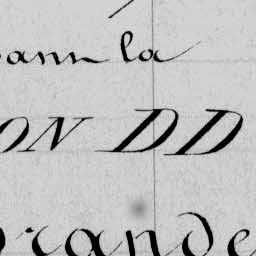 ann la
ON DD
rande